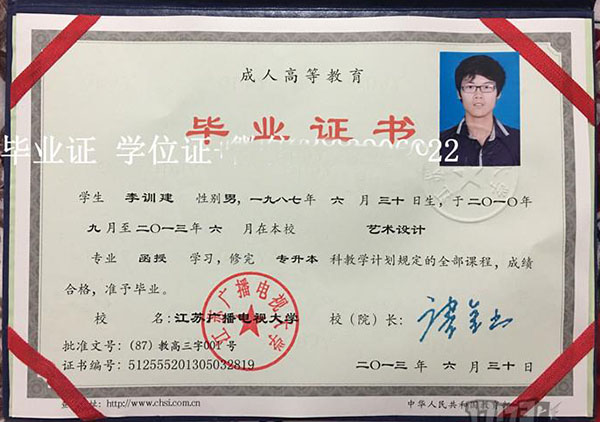 成人高等教育
毕业证书
毕业证 学位证
22
学生 李训建 性别男,一九八七年 六 月 三十日生,于二〇一〇年
九月至二〇一三年 六 月在本校 艺术设计
专业 函授 学习,修完 专升本 科教学计划规定的全部课程,成绩
合格,准予毕业。
校 名:江苏广播电视大学 校(院)长:
江苏广播电视大学
批准文号:(87)教高三字001号
证书编号:512555201305032819 二〇一三年 六 月 三十日
http://www.chsi.com.cn 中华人民共和国教育部